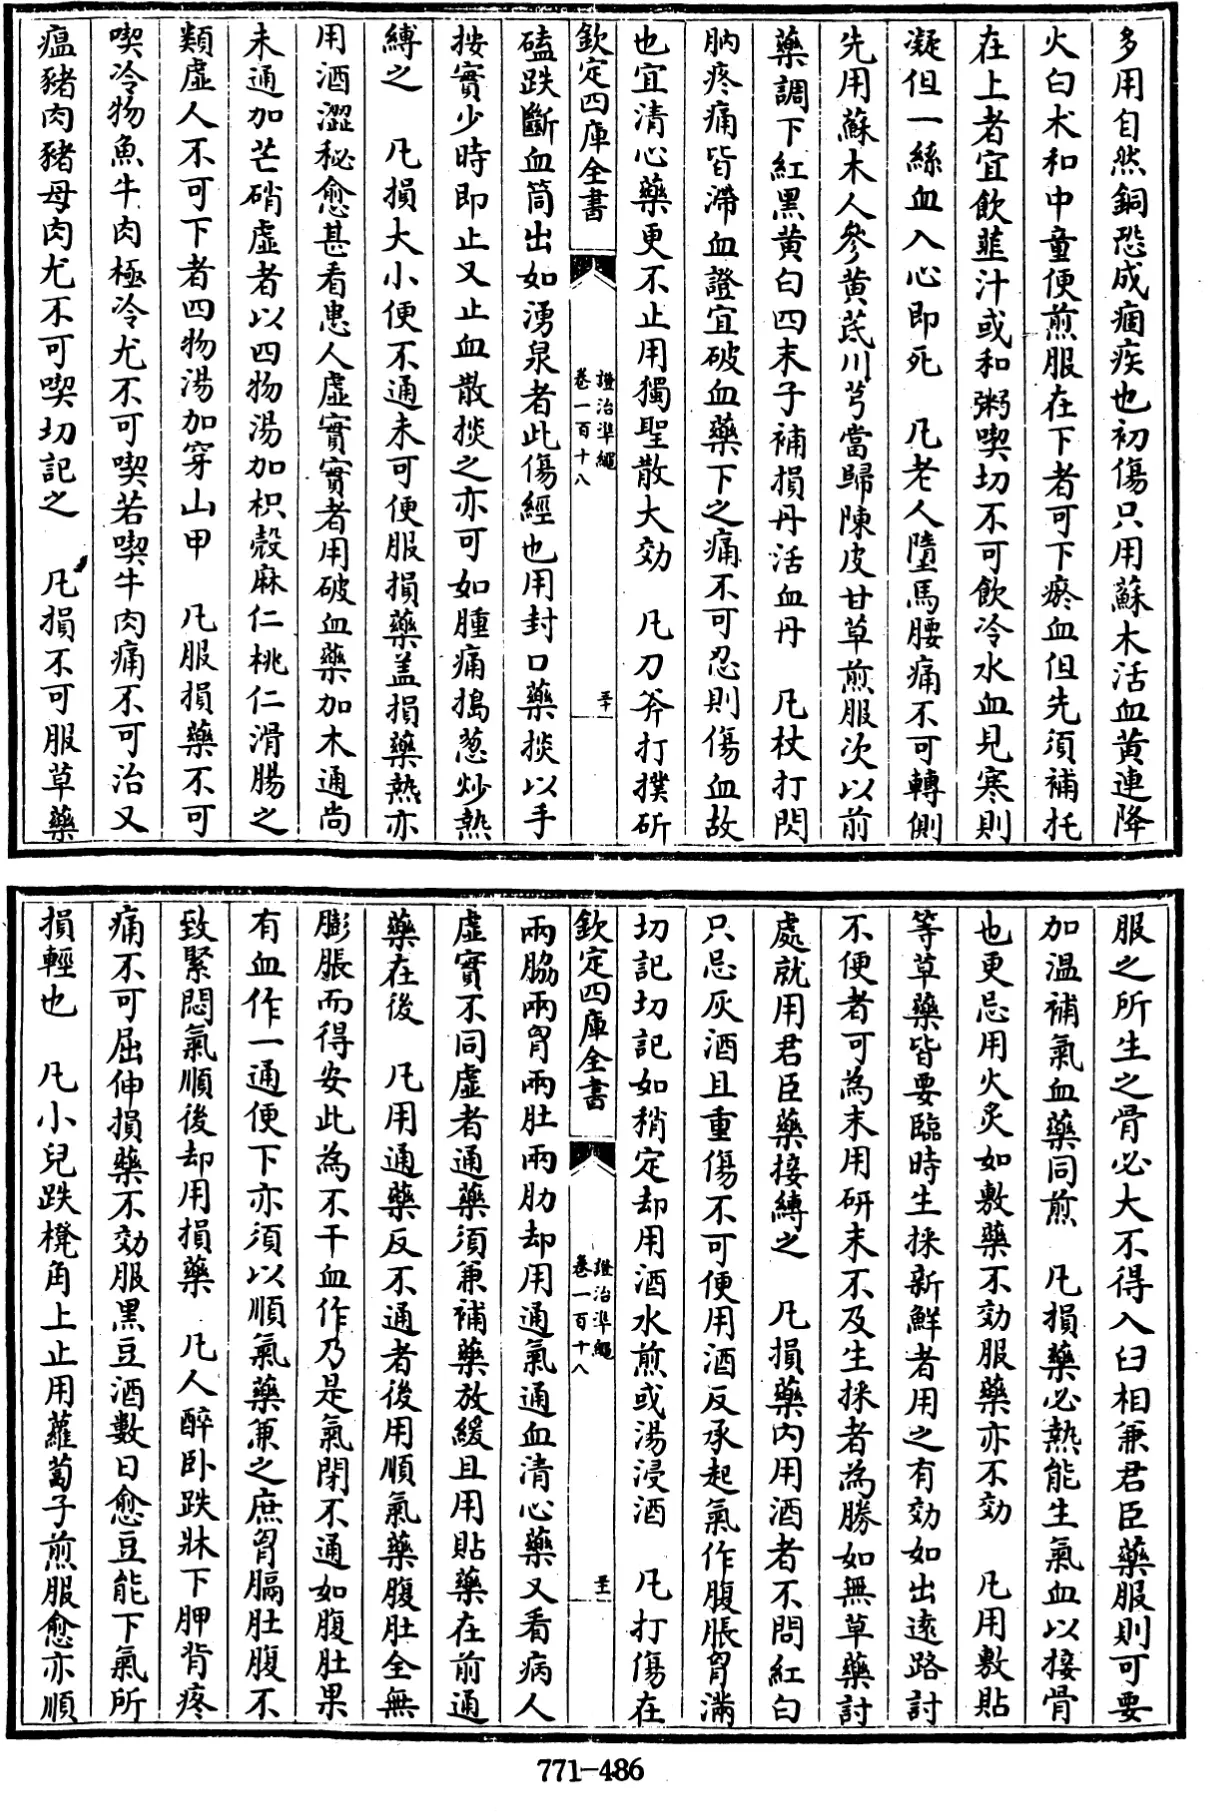 多用自然銅恐成痼疾也初傷只用蘇木活血黄連降
火白术和中童便煎服在下者可下瘀血但先須補托
在上者宜飲韮汁或和粥喫切不可飲冷水血見寒則
凝但一絲血入心即死　凡老人墮馬腰痛不可轉側
先用蘇木人參黄茋川芎當歸陳皮甘草煎服次以前
藥調下紅黑黄白四末子補損丹活血丹　凡杖打閃
肭疼痛皆滯血證宜破血藥下之痛不可忍則傷血故
也宜清心藥更不止用獨聖散大効　凡刀斧打撲斫
欽定四庫全書
證治凖繩
卷一百十八
磕跌斷血筒出如湧泉者此傷經也用封口藥掞以手
按實少時即止又止血散掞之亦可如腫痛搗葱炒熱
縛之　凡損大小便不通未可便服損藥盖損藥熱亦
用酒澀秘愈甚看患人虚實實者用破血藥加木通尚
未通加芒硝虚者以四物湯加枳殼麻仁桃仁滑腸之
類虚人不可下者四物湯加穿山甲　凡服損藥不可
喫冷物魚牛肉極冷尤不可喫若喫牛肉痛不可治又
瘟豬肉豬母肉尤不可喫切記之　凡損不可服草藥
服之所生之骨必大不得入臼相兼君臣藥服則可要
加温補氣血藥同煎　凡損藥必熱能生氣血以接骨
也更忌用火炙如敷藥不効服藥亦不効　凡用敷貼
等草藥皆要臨時生採新鮮者用之有効如出逺路討
不便者可為末用研末不及生採者為勝如無草藥討
處就用君臣藥接縛之　凡損藥内用酒者不問紅白
只忌灰酒且重傷不可便用酒反承起氣作腹脹胷滿
切記切記如稍定却用酒水煎或湯浸酒　凡打傷在
欽定四庫全書
證治凖繩
卷一百十八
兩脇兩胷兩肚兩肋却用通氣通血清心藥又看病人
虚實不同虚者通藥須兼補藥放緩且用貼藥在前通
藥在後　凡用通藥反不通者後用順氣藥腹肚全無
膨脹而得安此為不干血作乃是氣閉不通如腹肚果
有血作一通便下亦須以順氣藥兼之庶胷膈肚腹不
致緊悶氣順後却用損藥　凡人醉卧跌牀下胛背疼
痛不可屈伸損藥不効服黑豆酒數日愈豆能下氣所
損輕也　凡小兒跌櫈角上止用蘿蔔子煎服愈亦順
771-486